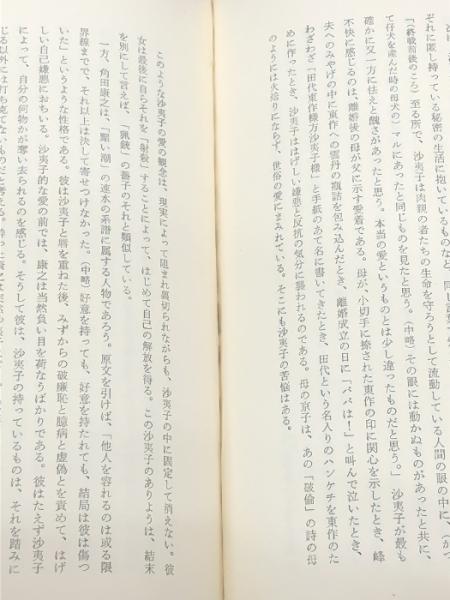 それに匿し持っている秘密の生活に抱いているものなど、
「（終戦前後のころ）至る所で、沙夷子は肉親の者たちの生命を守ろうとして流動している人間の眼の中に、（かつ
て仔犬を産んだ時の母犬の）マルにあったと同じものを見たと思う。（中略）その眼には動かぬものがあったと共に、
確かに又一方に怯えと醜さがあったと思う。本当の愛というものとは少し違ったものだと思う。」沙夷子が最も
不快に感じるのは、離婚後の母が父に示す愛着である。母が、小切手に捺された東作の印に関心を示したとき、峰
夫へのみやげの中に東作への雲丹の瓶詰を包み込んだとき、離婚成立の日に「パパは！」と叫んで泣いたとき、
わざわざ「田代東作様方沙夷子様」と手紙のあて名に書いてきたとき、田代という名入りのハンケチを東作のた
めに作ったとき、沙夷子ははげしい嫌悪と反抗の気分に襲われるのである。母の京子は、あの「破倫」の詩の母
のようには火焙りにならず、世俗の愛にまみれている。そこにも沙夷子の苦悩はある。
このような沙夷子の愛の観念は、現実によって阻まれ裏切られながらも、沙夷子の中に固定して消えない。彼
女は最後に自らそれを「射殺」することによって、はじめて自己の解放を得る。この沙夷子のありようは、結末
を別にして言えば、「猟銃」の薔子のそれと類似している。
一方、角田康之は、「黯い潮」の速水の系譜に属する人物であろう。原文を引けば、「他人を容れるのは或る限
界線までで、それ以上は決して寄せつけなかった。（中略）好意を持っても、好意を持たれても、結局は彼は傷つ
いた」というような性格である。彼は沙夷子と唇を重ねた後、みずからの破廉恥と臆病と虚偽とを責めて、はげ
しい自己嫌悪におちいる。沙夷子的な愛の前では、康之は当然負い目を荷なうばかりである。彼はたえず沙夷子
によって、自分の何物かが奪い去られるのを感じる。そうして彼は、沙夷子の持っているものは、それを踏みに
じる以外には打ち克てないものだと考える。